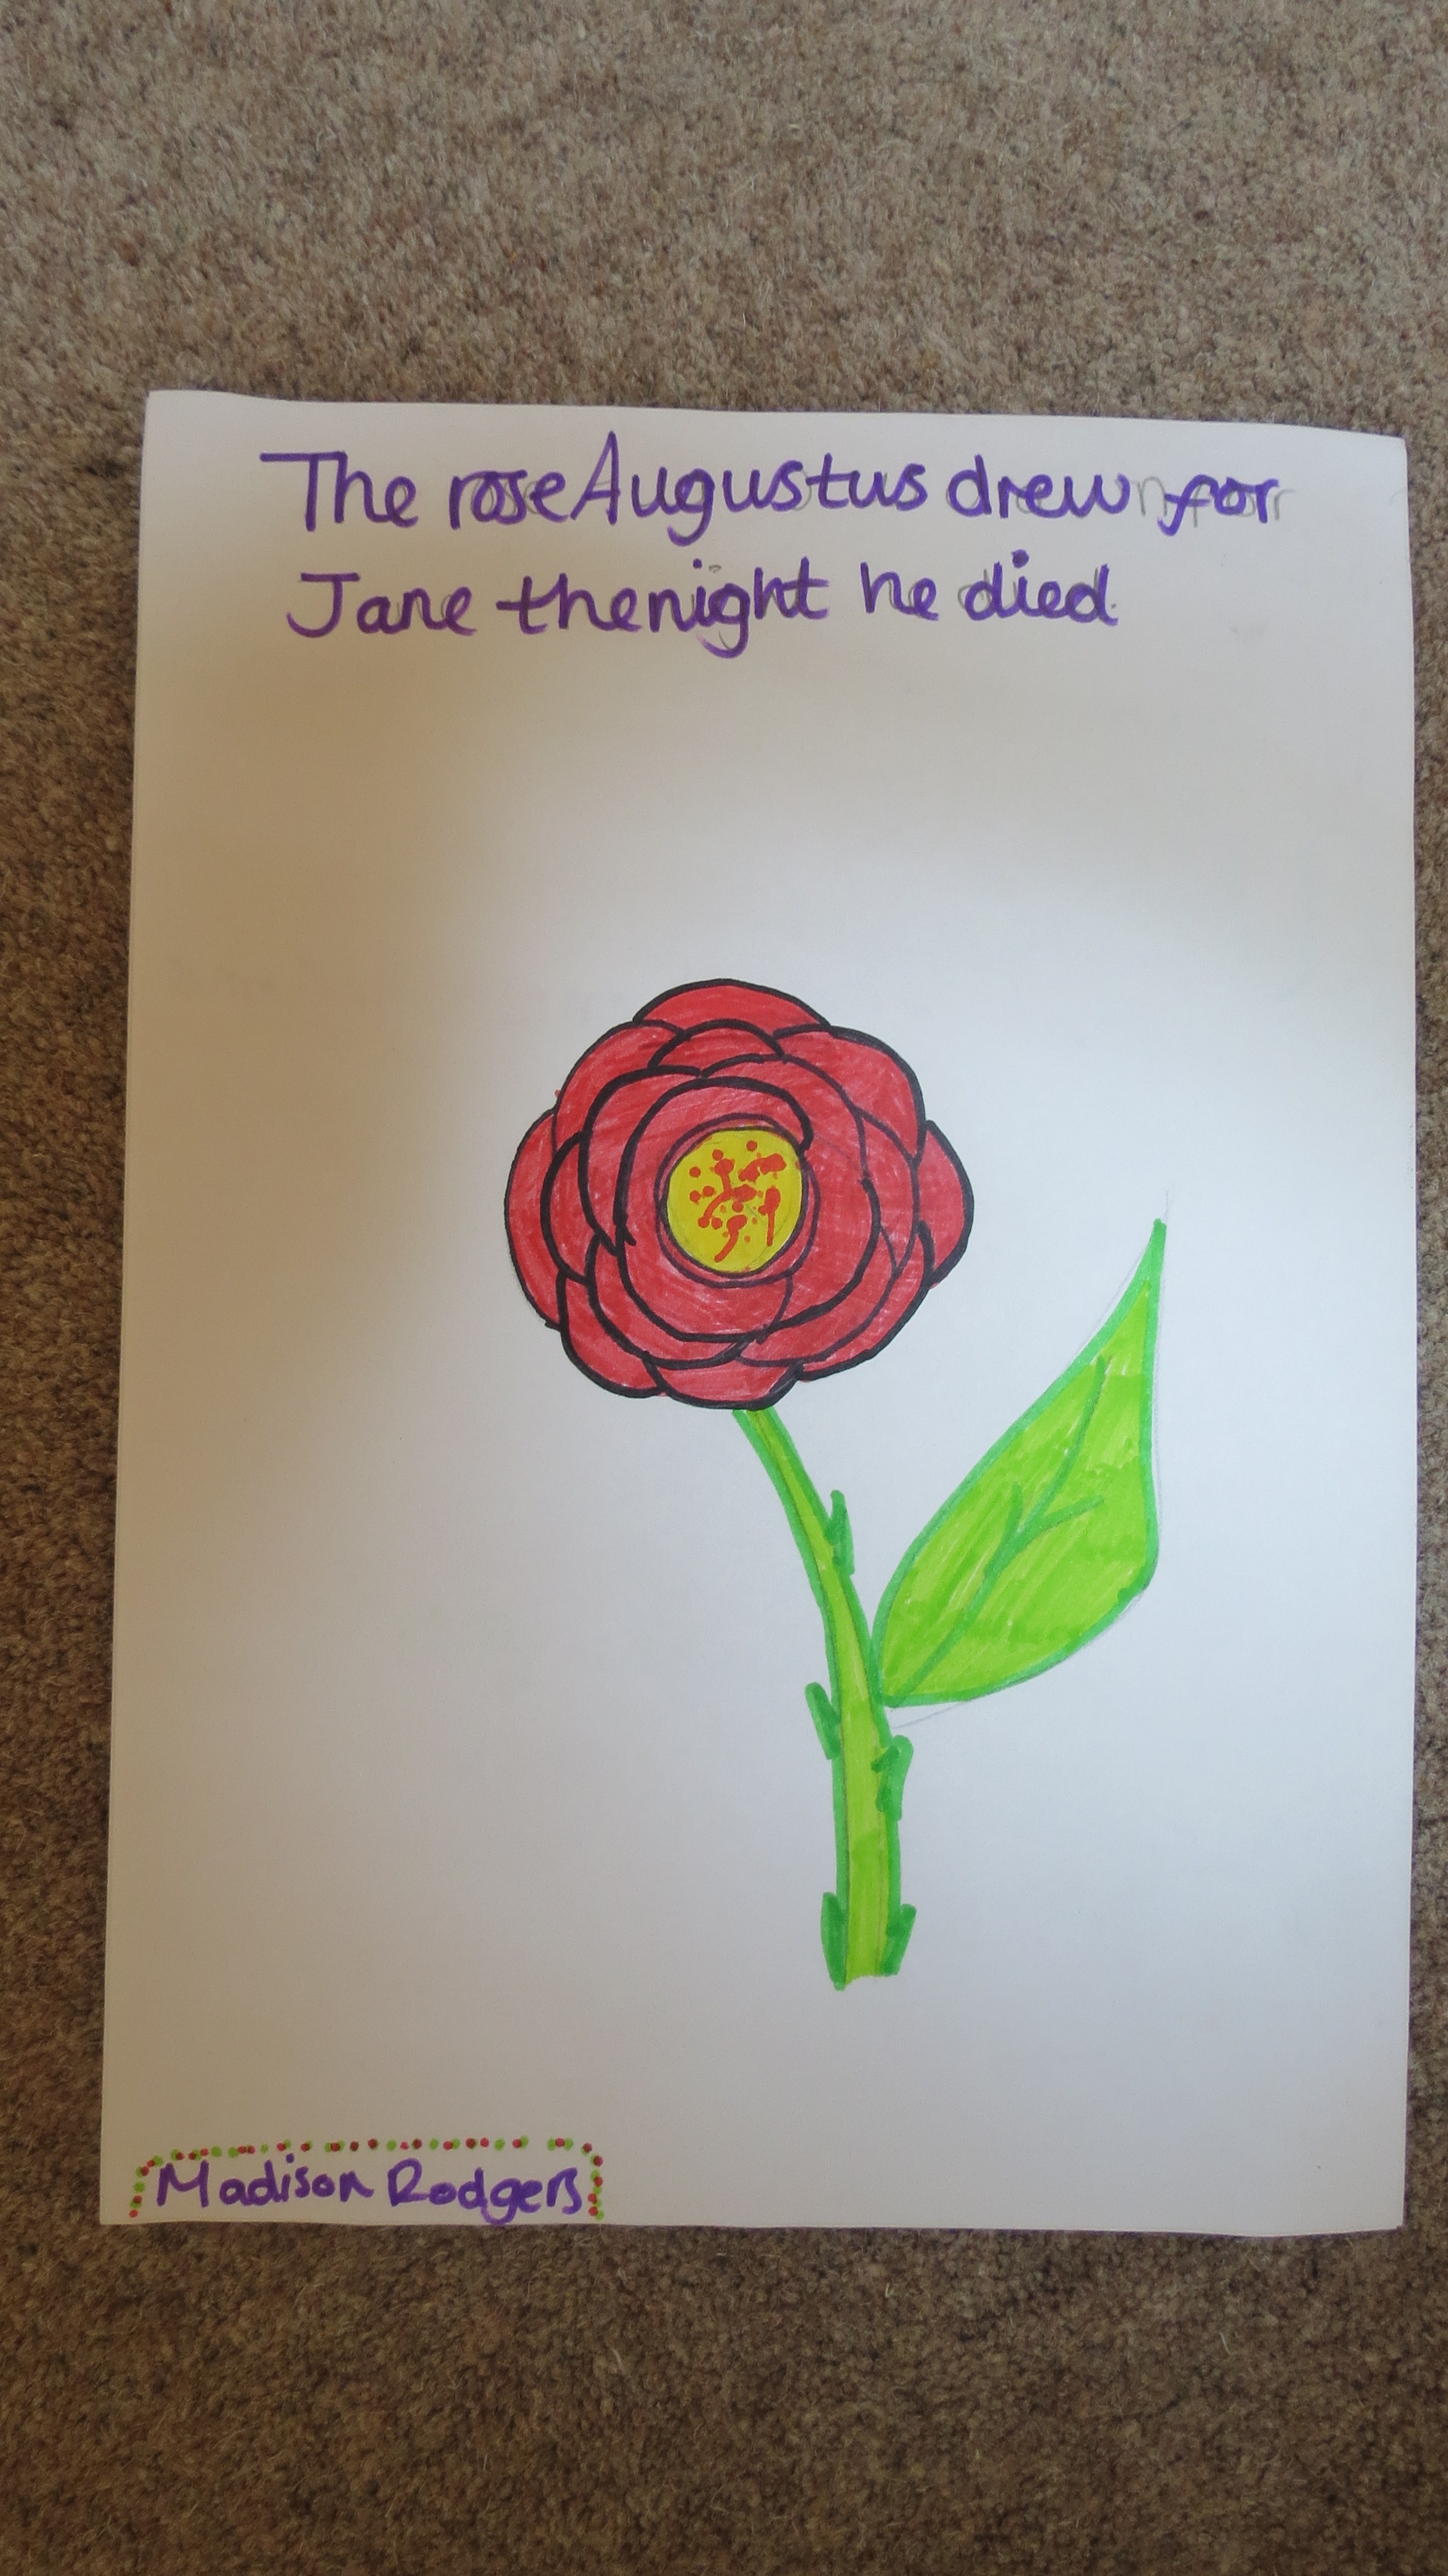 The rose Augustus drew for
Jane the night he died
Madison Rodgers